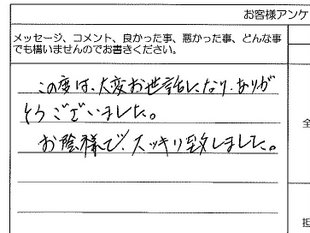 お客様アンケ
メッセージ、コメント、良かった事、悪かった事、どんな事
でも構いませんのでお書きください。
この度は、大変お世話になり、ありが
とうございました。
お陰様で、スッキリ致しました。
全
担